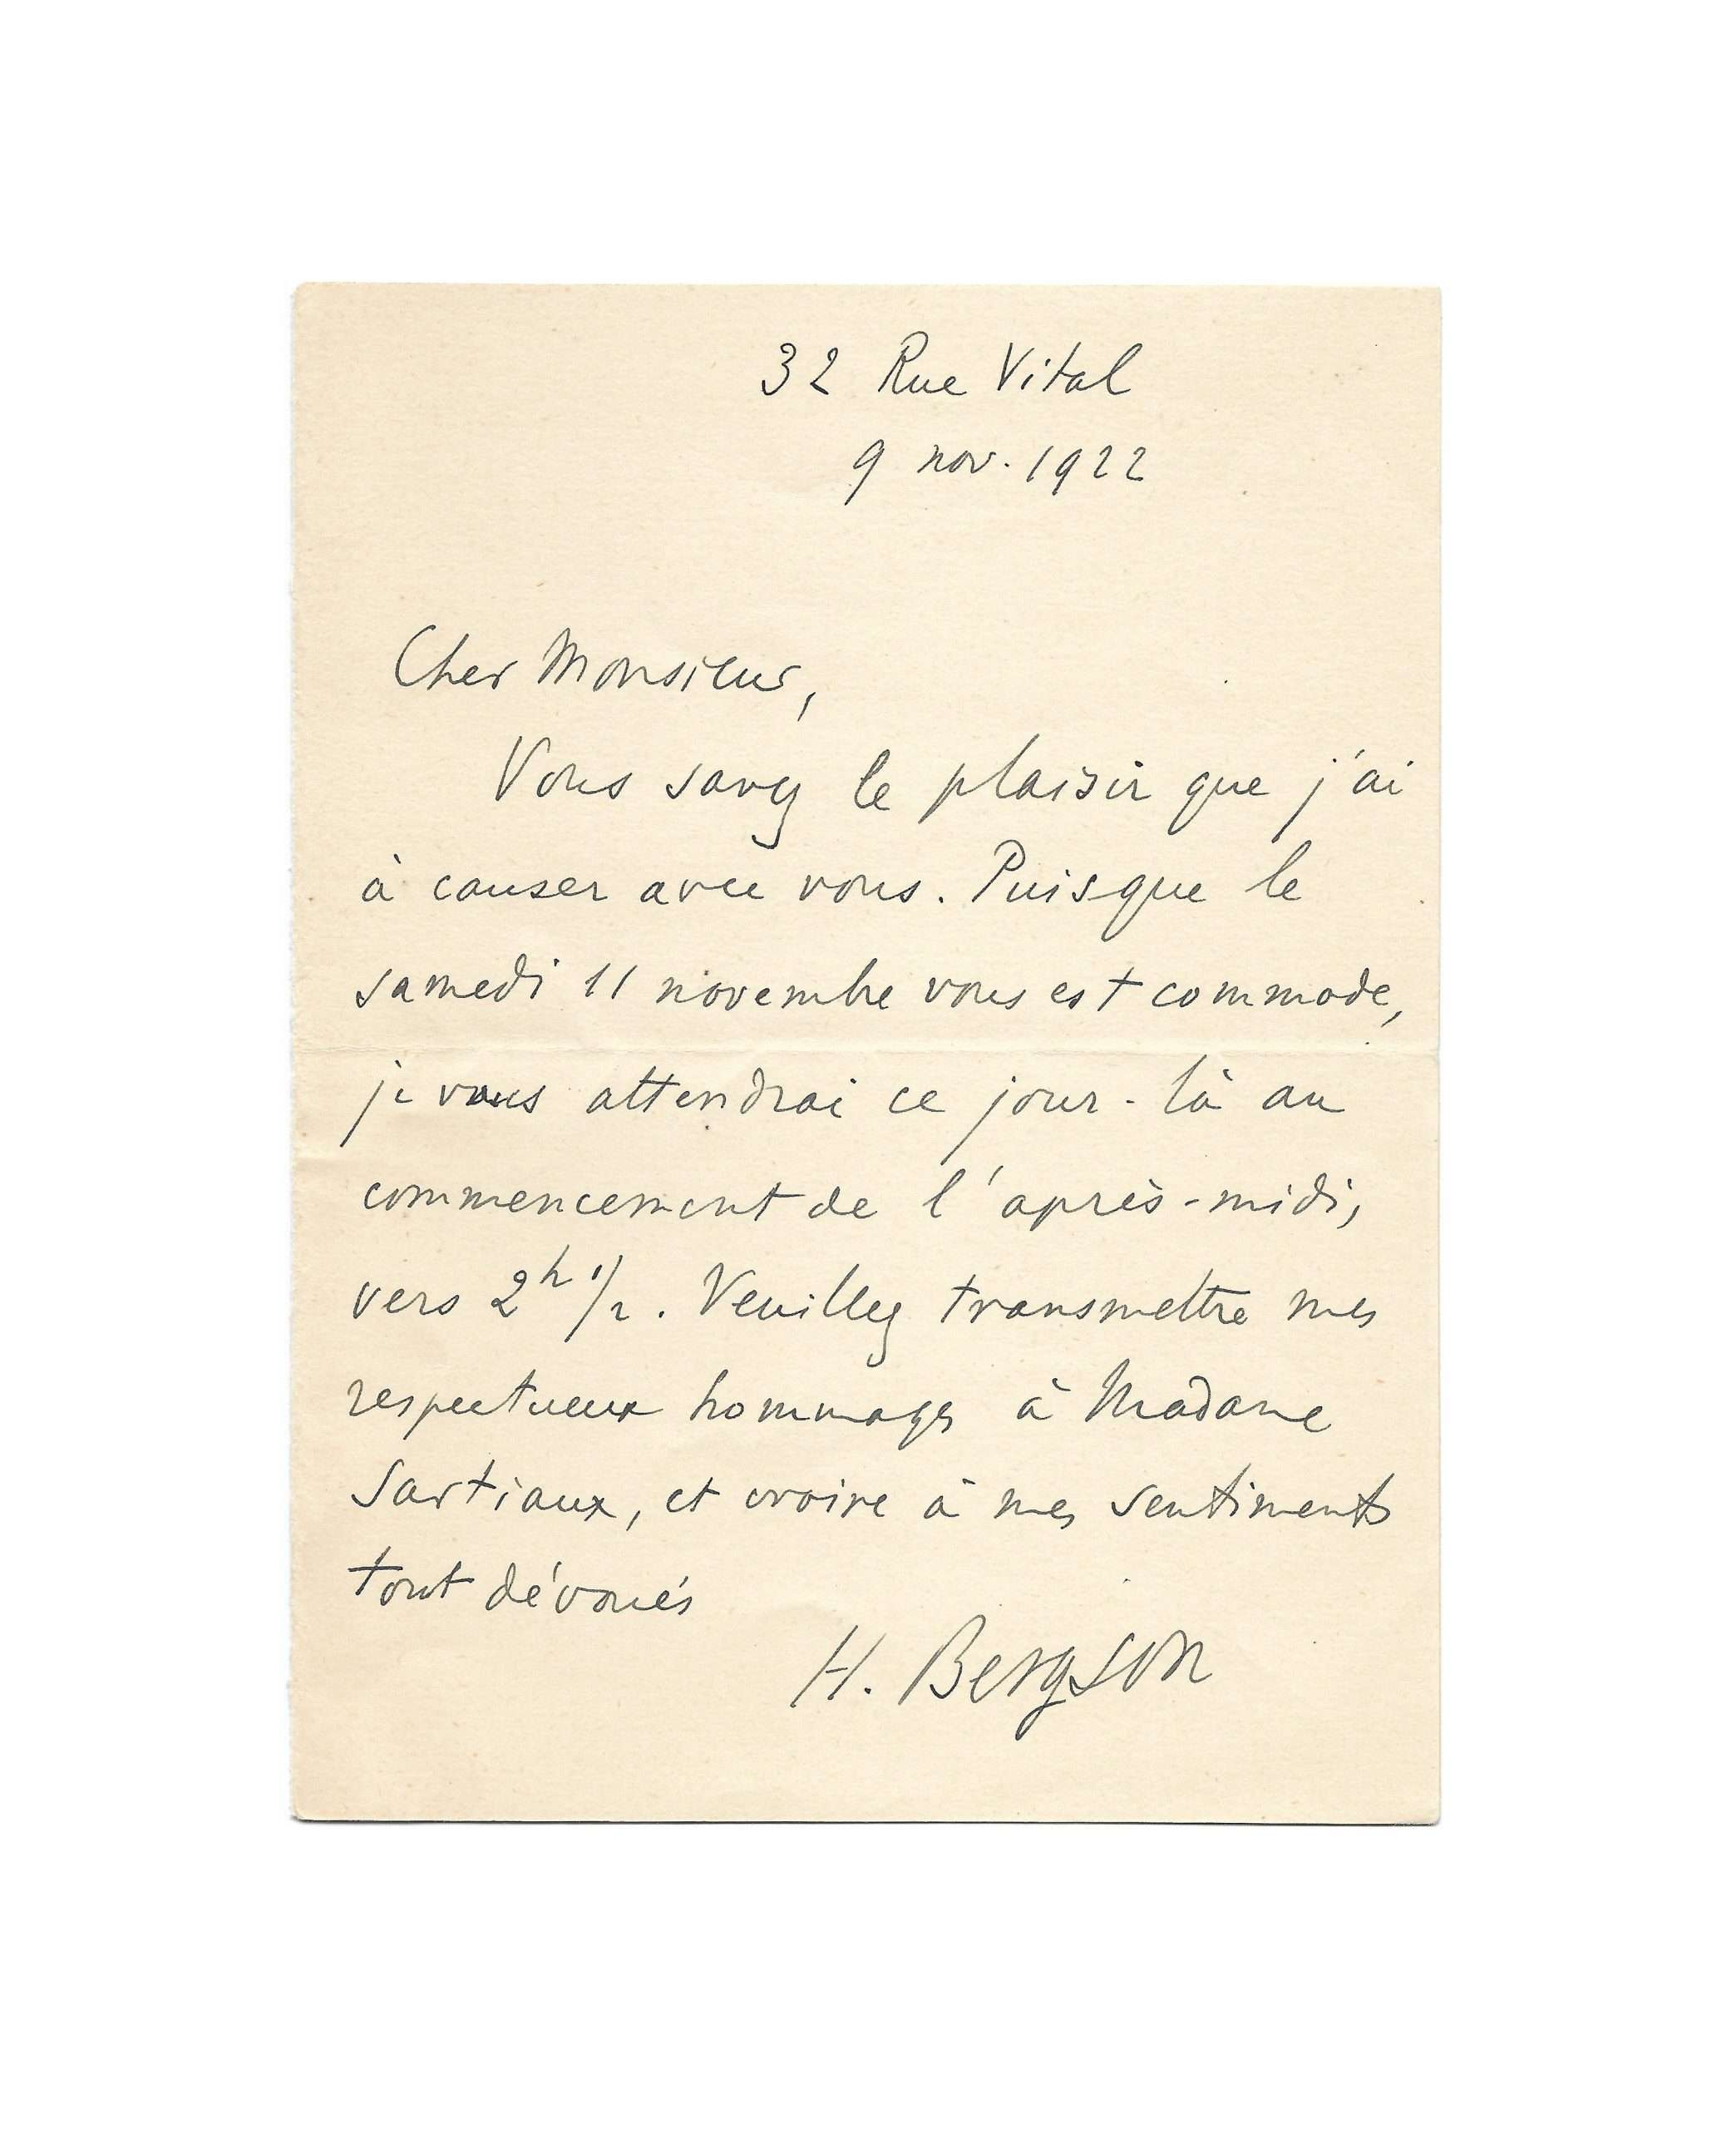 32 Rue Vital
9 nov. 1922
Cher Monsieur,
Vous savez le plaisir que j'ai
à causer avec vous. Puisque le
samedi 11 novembre vous est commode,
je vous attendrai ce jour-là au
commencement de l'après-midi,
vers 2h 1/2. Veuillez transmettre mes
respectueux hommages à Madame
Sartiaux, et croire à mes sentiments
tout dévoués
H. Bergson